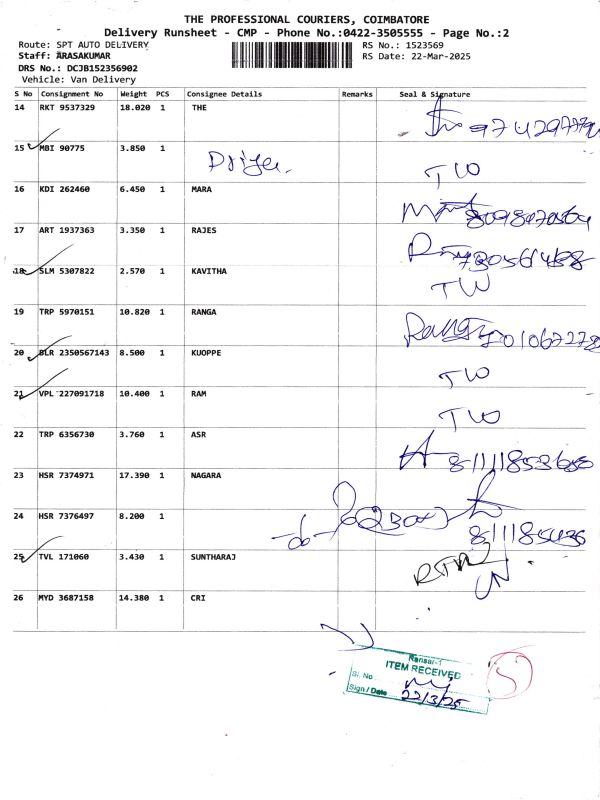 THE PROFESSIONAL COURIERS, COIMBATORE
Delivery Runsheet - CMP - Phone No.:0422-3505555 - Page No.:2
Route: SPT AUTO DELIVERY
RS No.: 1523569
Staff: ARASAKUMAR
RS Date: 22-Mar-2025
DRS No.: DCJB152356902
Vehicle: Van Delivery
S No Consignment No Weight PCS Consignee Details Remarks Seal & Signature
14 RKT 9537329 18.020 1 THE
15 MBI 90775 3.850 1 TW
16 KDI 262460 6.450 1 MARA
17 ART 1937363 3.350 1 RAJES
18 SLM 5307822 2.570 1 KAVITHA TW
19 TRP 5970151 10.820 1 RANGA
20 BLR 2350567143 8.500 1 KUOPPE TW
21 VPL 227091718 10.400 1 RAM TW
22 TRP 6356730 3.760 1 ASR
23 HSR 7374971 17.390 1 NAGARA
24 HSR 7376497 8.200 1
25 TVL 171060 3.430 1 SUNTHARAJ RTN
26 MYD 3687158 14.380 1 CRI
Ransar-1
ITEM RECEIVED
Sl. No
Sign / Date 22/3/25
5